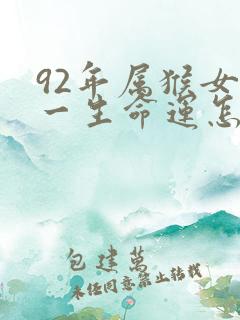 92年属猴女
一生命运怎
包建万
未经同意禁止转载